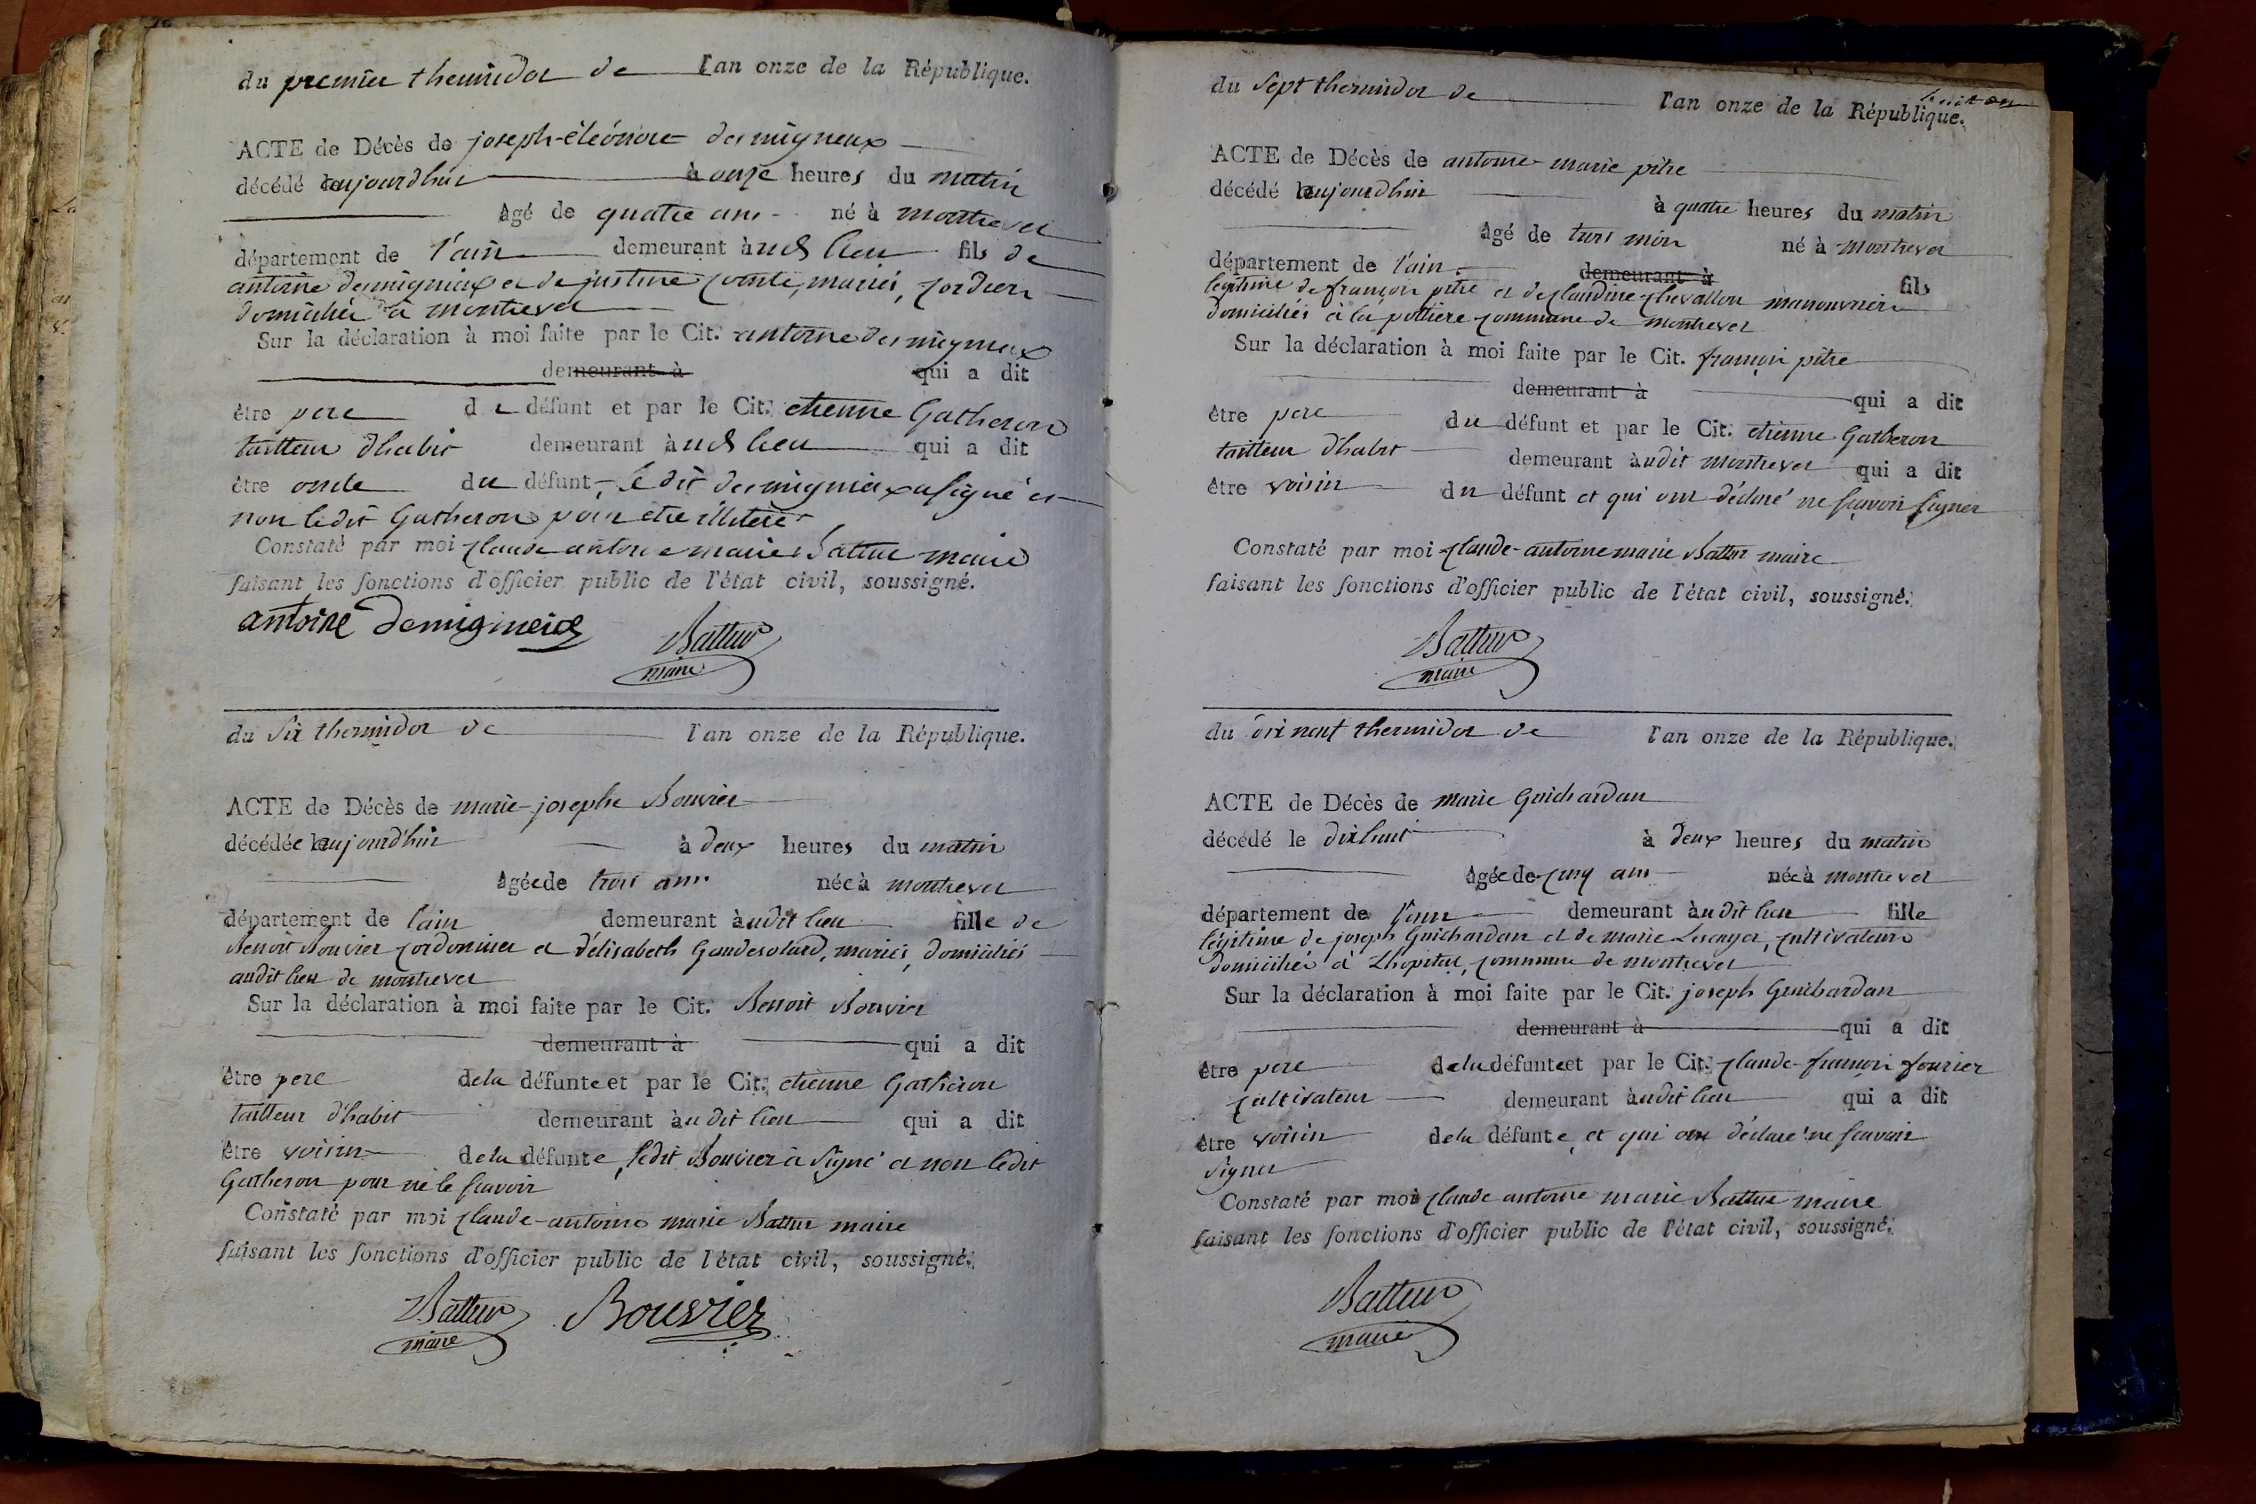 du premier thermidor de l'an onze de la République.
ACTE de Décès de joseph-éléonore desmigneux
décédé aujourdhui à onze heures du matin
âgé de quatre ans né à montrevel
département de l'ain demeurant audit lieu fils de
antoine desmigneux et de justine mariés, cordiers
domiciliés à montrevel
Sur la déclaration à moi faite par le Cit. antoine desmigneux
demeurant à qui a dit
être pere de défunt et par le Cit. etienne Gatheron
tailleur dhabit demeurant audit lieu qui a dit
être oncle du défunt, le dit desmigneux a signé et
non ledit Gatheron pour etre illitéré
Constaté par moi claude antoine marie Battur maire
faisant les fonctions d'officier public de l'état civil, soussigné.
antoine Demigneux Battur
maire
du six thermidor de l'an onze de la République.
ACTE de Décès de marie-josephe Bouvier
décédée aujourd'hui à deux heures du matin
âgée de trois ans née à montrevel
département de l'ain demeurant audit lieu fille de
Benoit Bouvier cordonnier et d'élisabeth mariés, domiciliés
audit lieu de montrevel
Sur la déclaration à moi faite par le Cit. Benoit Bouvier
demeurant à qui a dit
être pere de la défunte et par le Cit. etienne Gatheron
tailleur d'habit demeurant audit lieu qui a dit
être voisin de la défunte, ledit Bouvier à signé et non ledit
Gatheron pour ne le scavoir
Constaté par moi claude-antoine marie Battur maire
faisant les fonctions d'officier public de l'état civil, soussigné.
Battur Bouvier
maire
huit
du sept thermidor de l'an onze de la République.
ACTE de Décès de antoine-marie pitre
décédé aujourdhui à quatre heures du matin
âgé de trois mois né à montrevel
département de l'ain demeurant à fils
légitime de françois pitre et de claudine chevallon manouvriers
domiciliés à la commune de montrevel
Sur la déclaration à moi faite par le Cit. françois pitre
demeurant à qui a dit
être pere du défunt et par le Cit. etienne Gatheron
tailleur d'habit demeurant audit montrevel qui a dit
être voisin du défunt et qui ont déclaré ne scavoir signer
Constaté par moi claude-antoine marie Battur maire
faisant les fonctions d'officier public de l'état civil, soussigné.
Battur
maire
du dix neuf thermidor de l'an onze de la République.
ACTE de Décès de marie Guichardan
décédé le dixhuit à deux heures du matin
âgée de cinq ans née à montrevel
département de l'ain demeurant audit lieu fille
légitime de joseph Guichardan et de marie cultivateurs
domiciliés à Lhopital, commune de montrevel
Sur la déclaration à moi faite par le Cit. joseph Guichardan
demeurant à qui a dit
être pere de la défunte et par le Cit. claude-françois fourier
cultivateur demeurant audit lieu qui a dit
être voisin de la défunte, et qui ont déclaré ne scavoir
signer
Constaté par moi claude antoine marie Battur maire
faisant les fonctions d'officier public de l'état civil, soussigné.
Battur
maire